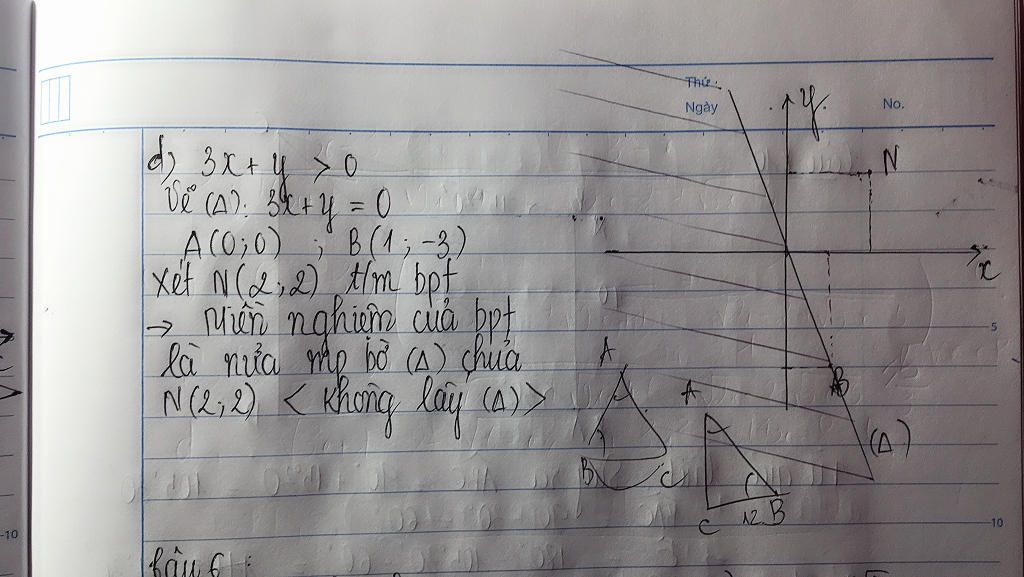 Thứ
Ngày
No.
d) 3x + y > 0
Vẽ (Δ): 3x + y = 0
A(0;0) ; B(1;-3)
Xét N(2;2) t/m bpt
→ Miền nghiệm của bpt
là nửa mp bờ (Δ) chứa
N(2;2) < không lấy (Δ) >
y
N
x
5
B
(Δ)
A
B
C
A
C
12
B
10
-10
Câu 6 :